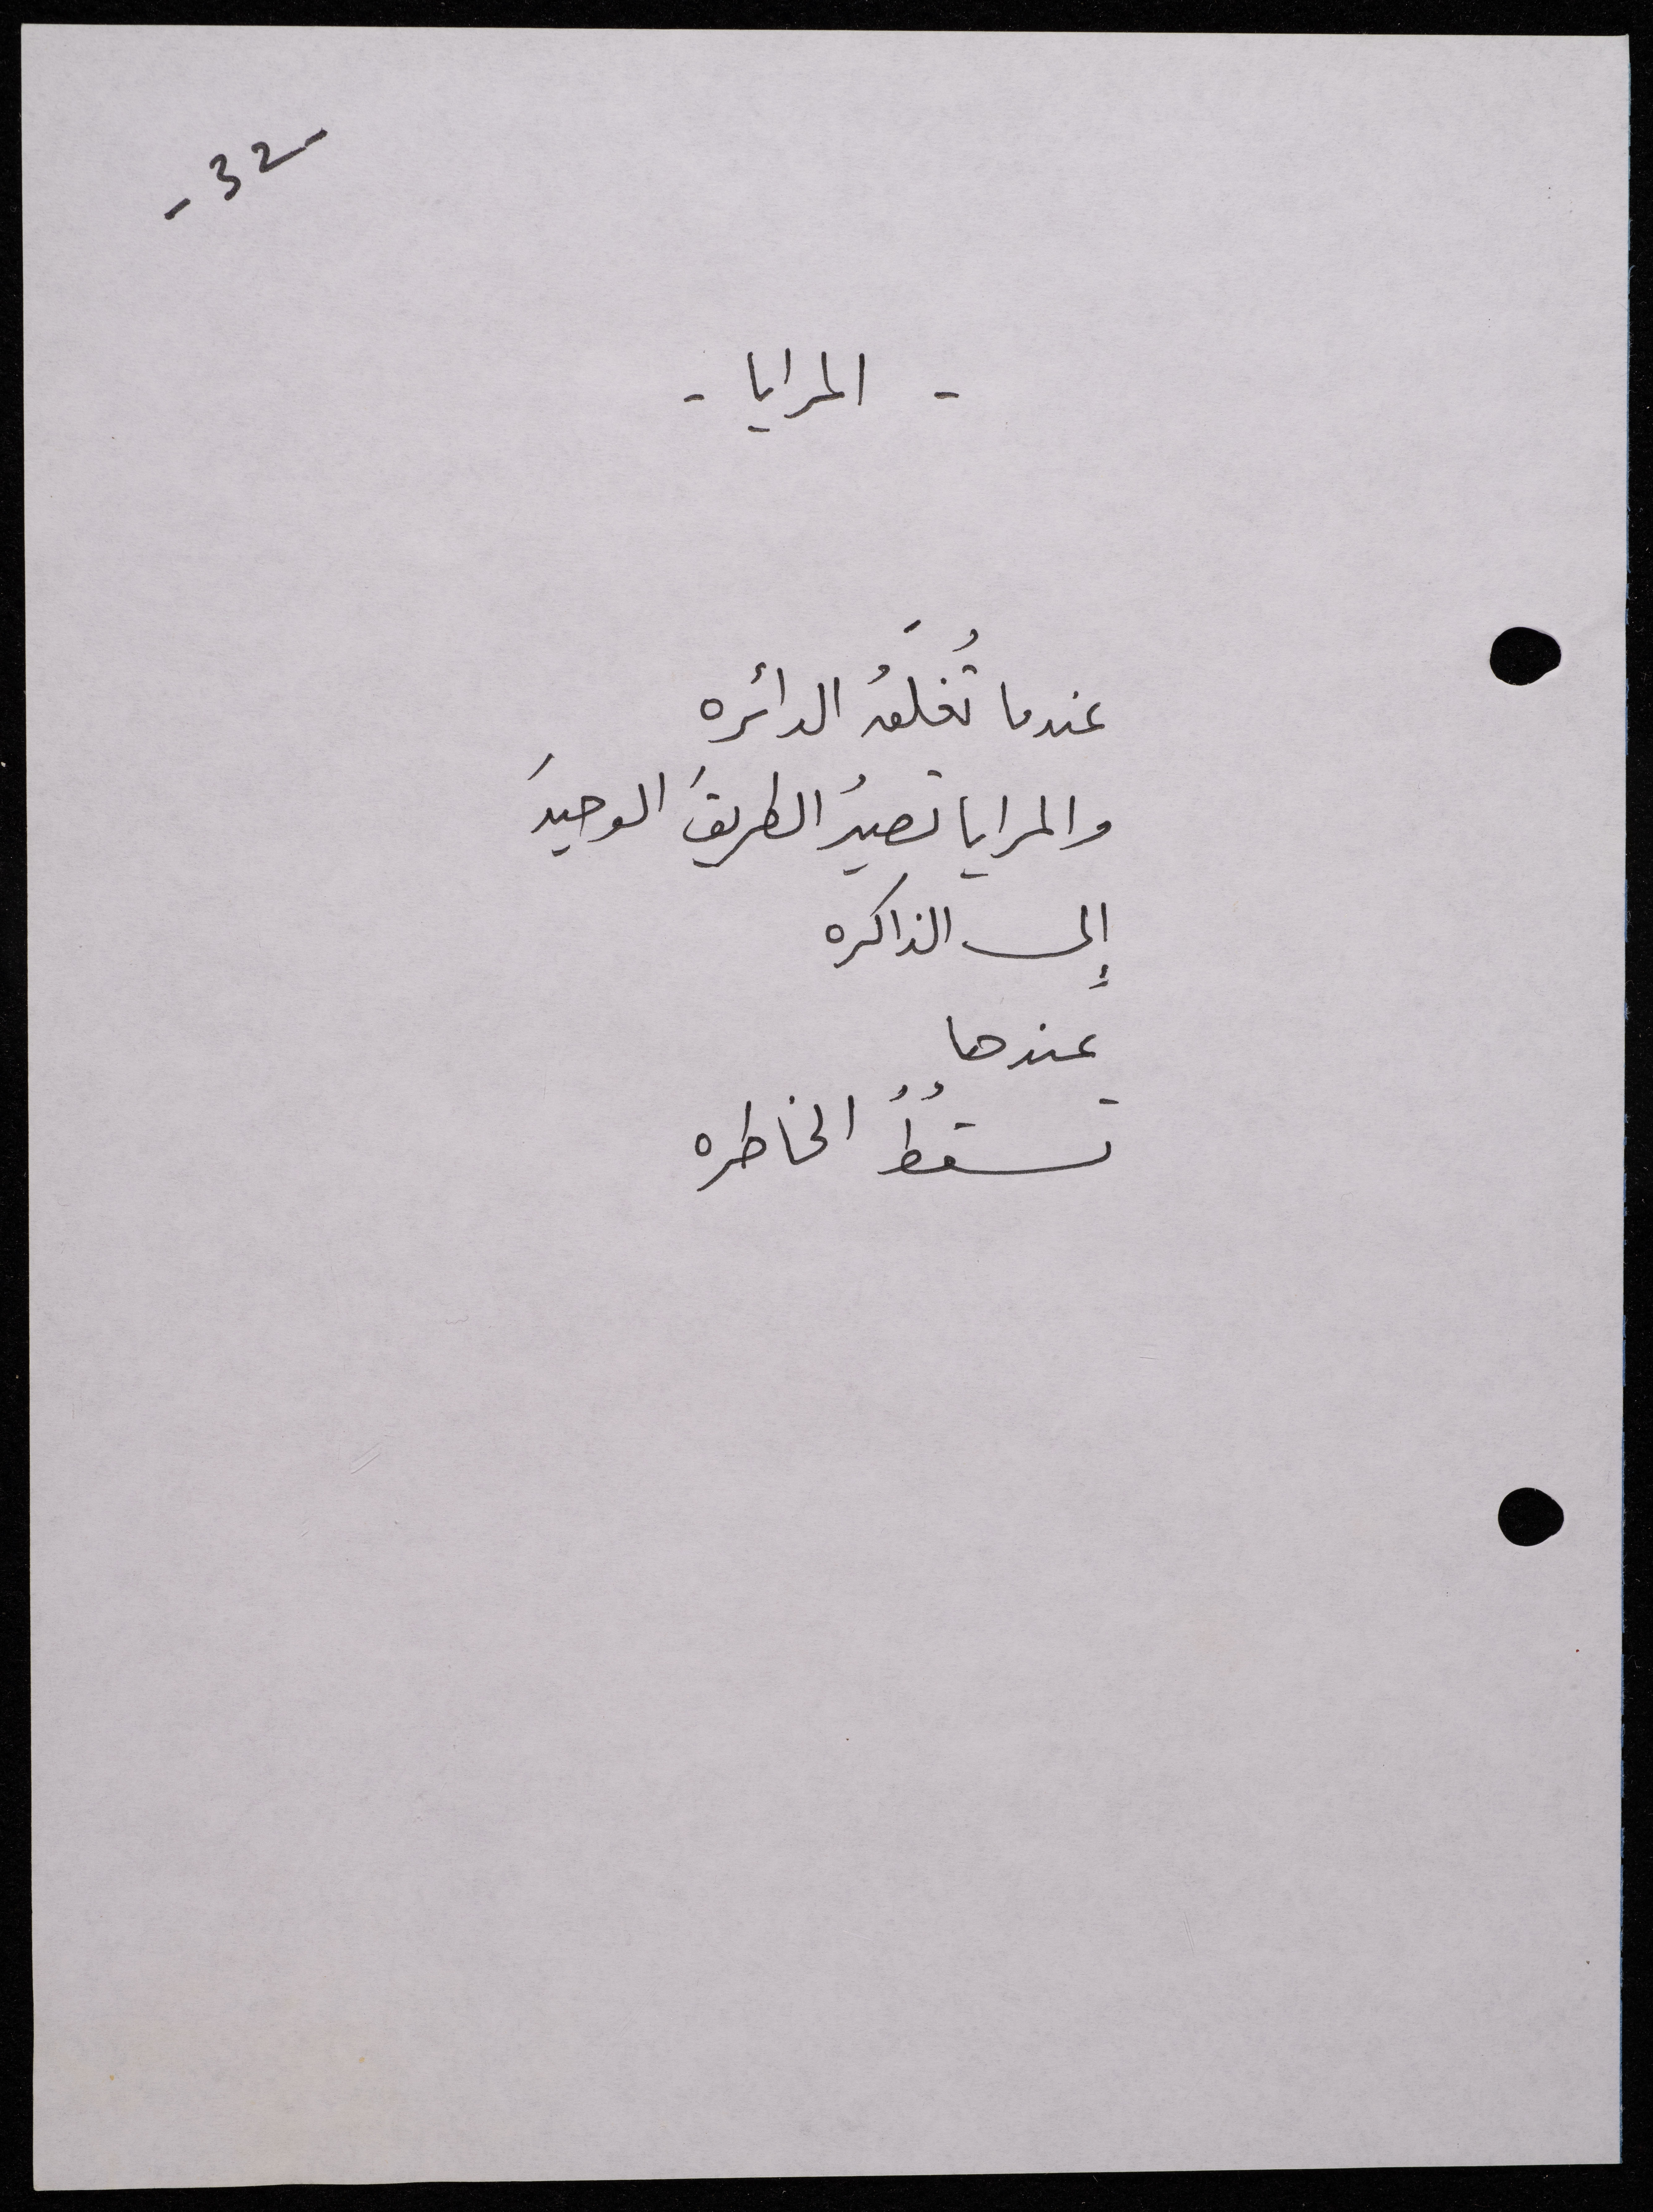 - 32 -
- المرايا -
عندما تُغلَقُ الدائره
والمرايا تصيرُ الطريقَ الوحيدَ
إلى الذاكره
عندها
تسقُطُ الخاطره